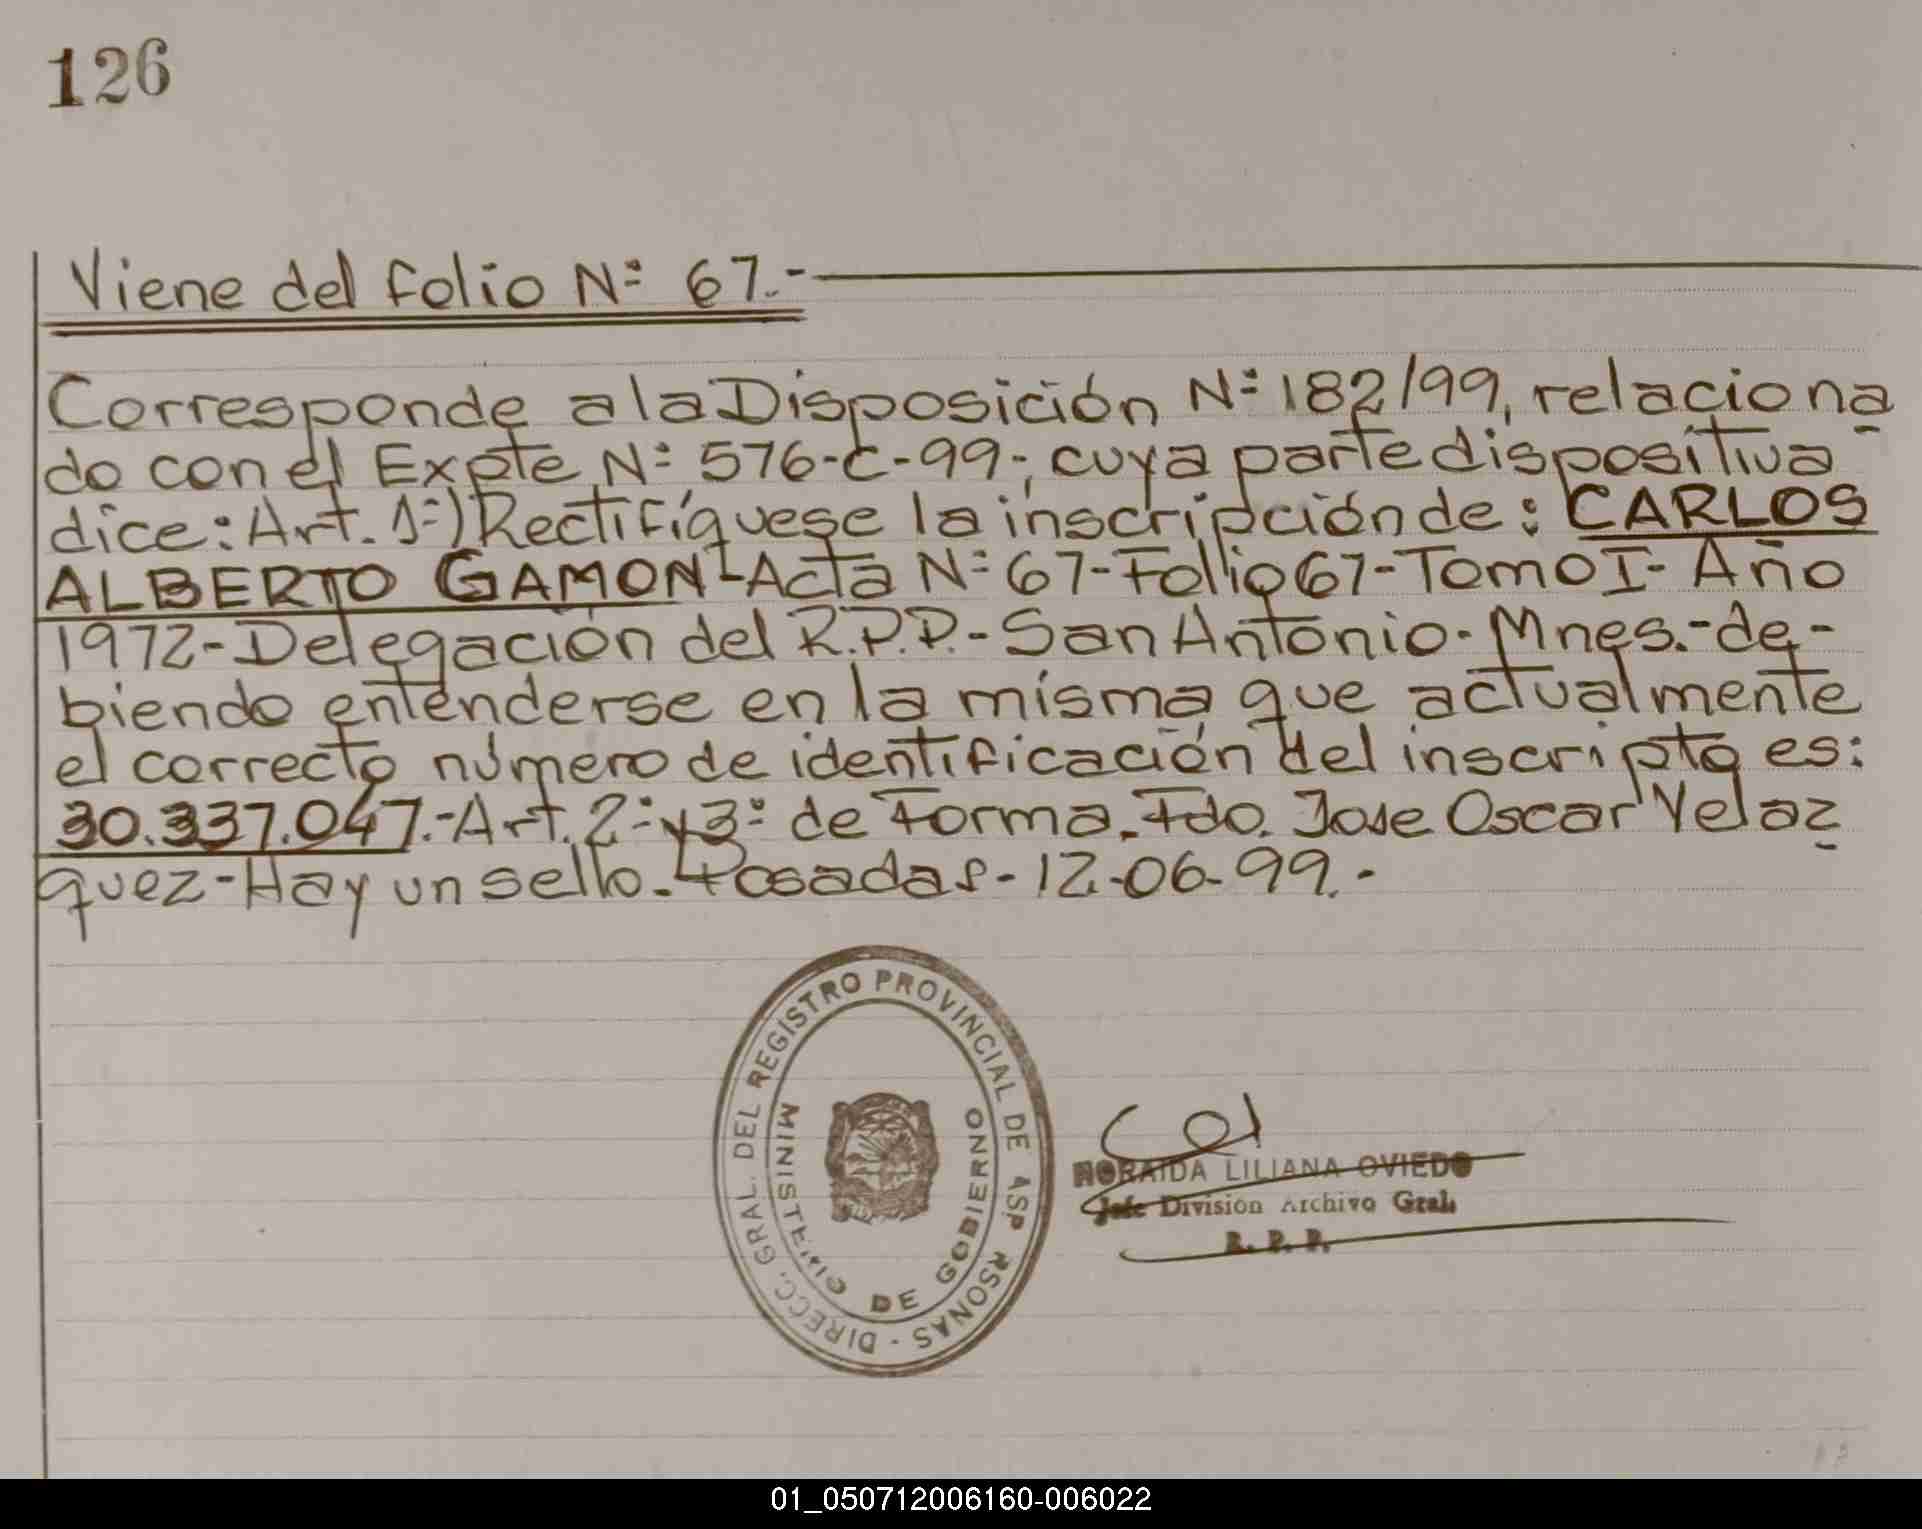 126
Viene del folio Nº 67.-
Corresponde a la Disposición Nº 182/99, relaciona
do con el Expte Nº 576-C-99-, cuya parte dispositiva-
dice: Art. 1º) Rectifíquese la inscripción de: CARLOS
ALBERTO GAMON-Acta Nº 67-Folio 67-Tomo I- Año
1972-Delegación del R.P.P.-San Antonio-Mnes.-de-
biendo entenderse en la misma que actualmente
el correcto número de identificación del inscripto es:
30.337.047.-Art. 2º y 3º de Forma. Fdo. Jose Oscar Velaz-
quez-Hay un sello. Posadas-12-06-99.-
DIRECC. GRAL. DEL REGISTRO PROVINCIAL DE
RSONAS -
MINISTERIO DE GOBIERNO
LILIANA OVIEDO
Jefe División Archivo Gral.
R. P. P.
01_050712006160-006022